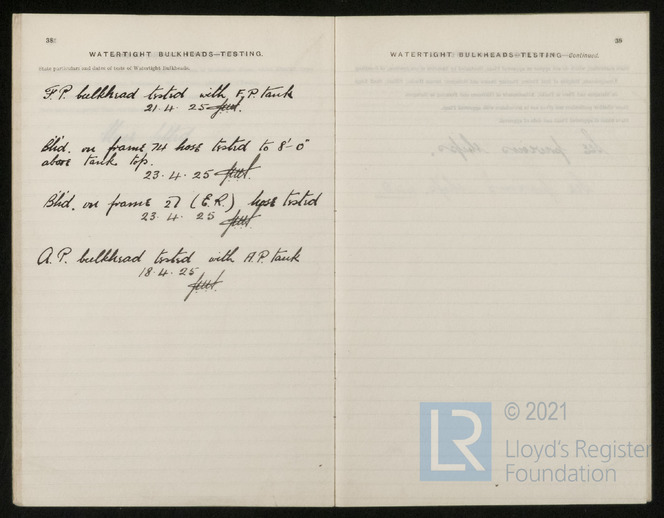 38
WATERTIGHT BULKHEADS—TESTING.
State particulars and dates of tests of Watertight Bulkheads.
F.P. bulkhead tested with F.P. tank
21. 4. 25
Bhd. on frame 74 hose tested to 8'-0"
above tank top.
23. 4. 25
Bhd. on frame 27 (E.R.) hose tested
23. 4. 25
A.P. bulkhead tested with A.P. tank
18. 4. 25
39
WATERTIGHT BULKHEADS—TESTING—Continued.
LR
© 2021
Lloyd's Register
Foundation